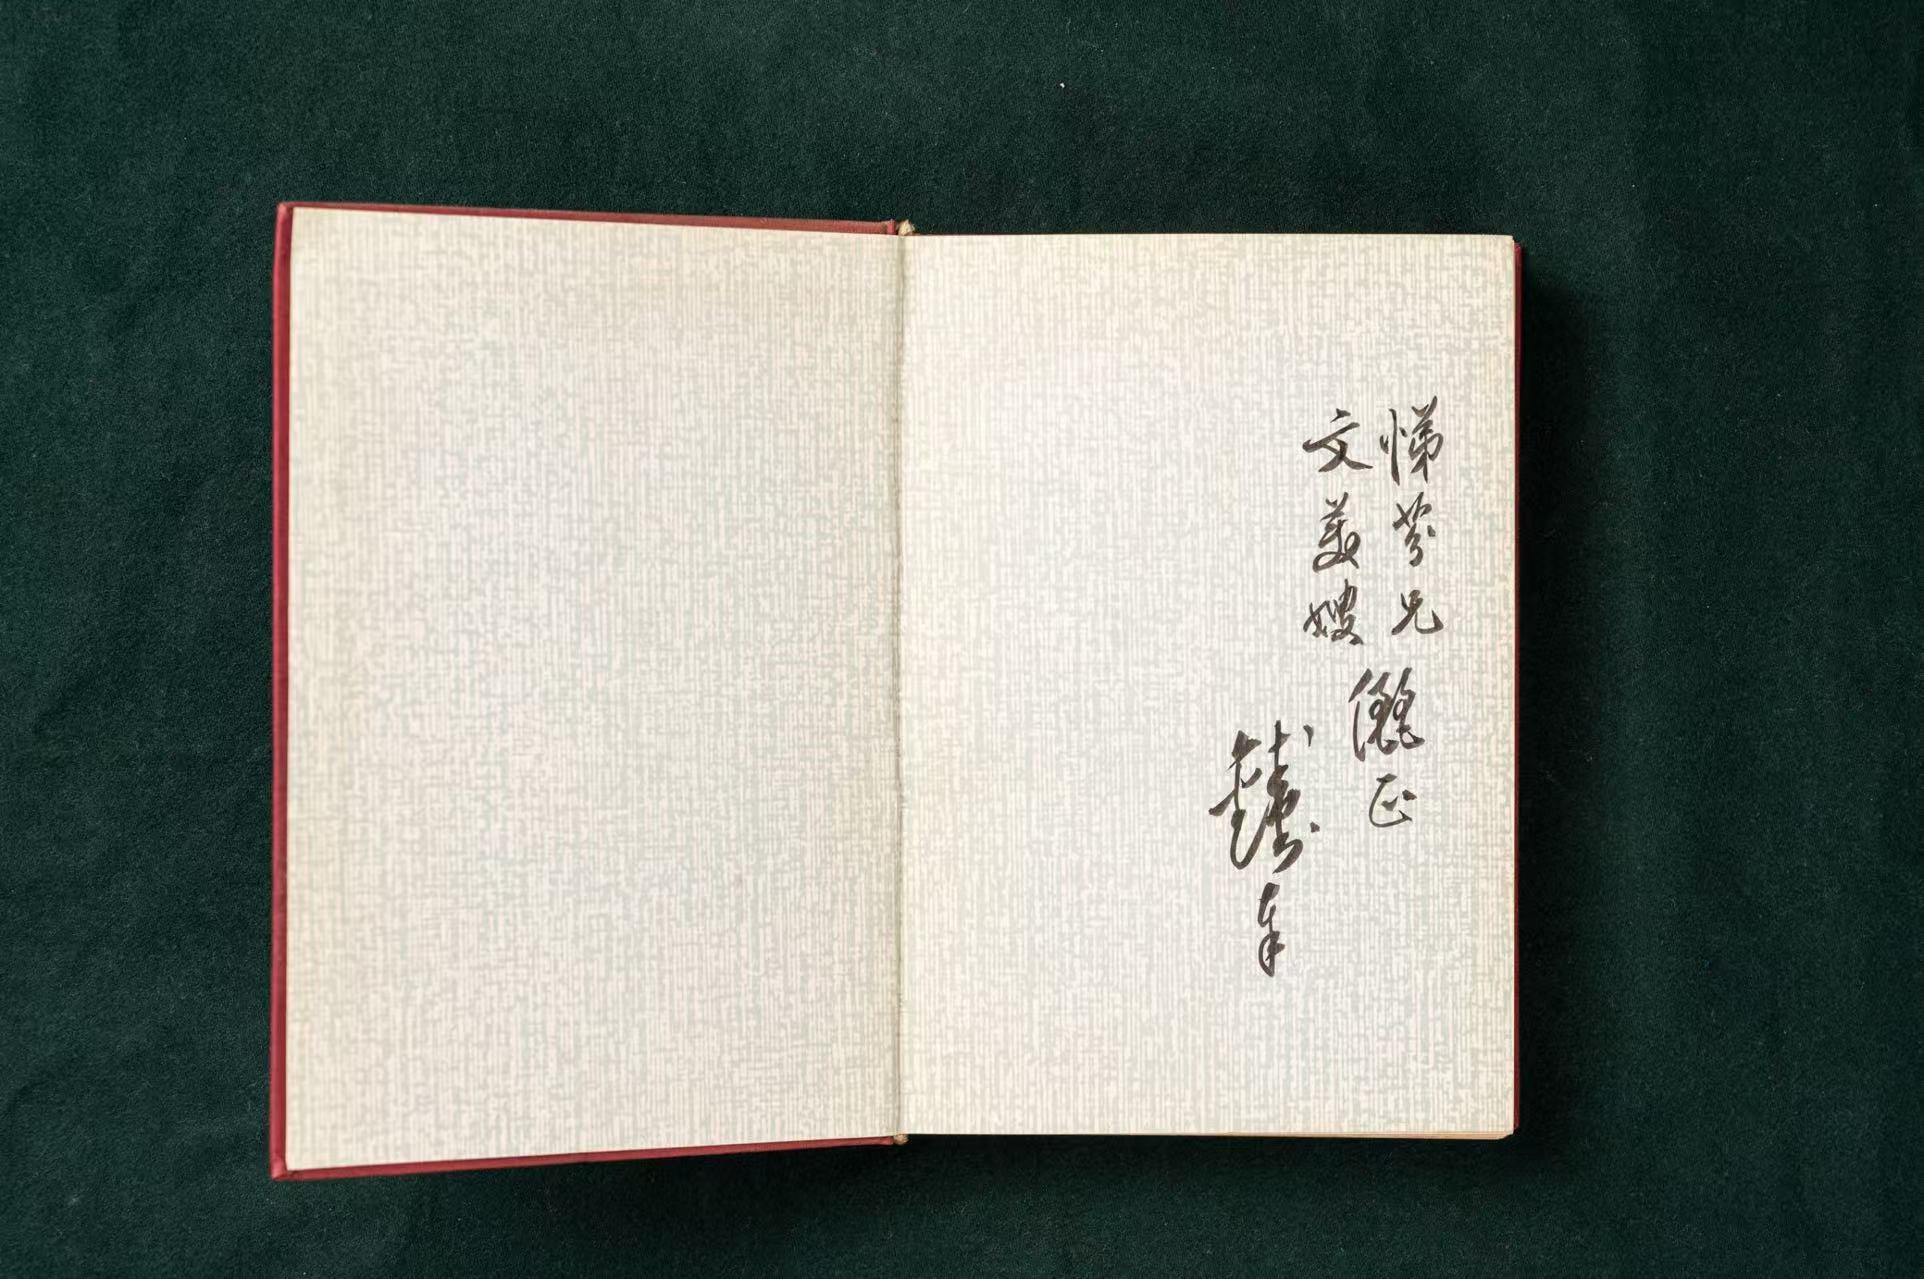 悌芬兄
文美嫂
儷正
奉